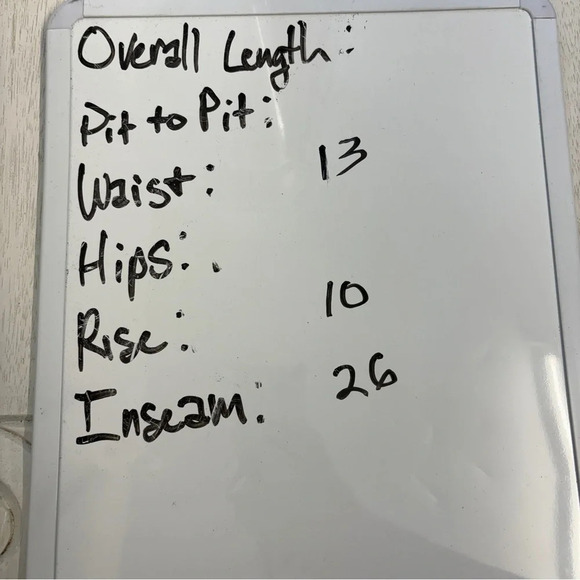 Overall Length:
Pit to Pit:
Waist: 13
Hips:
Rise: 10
Inseam: 26